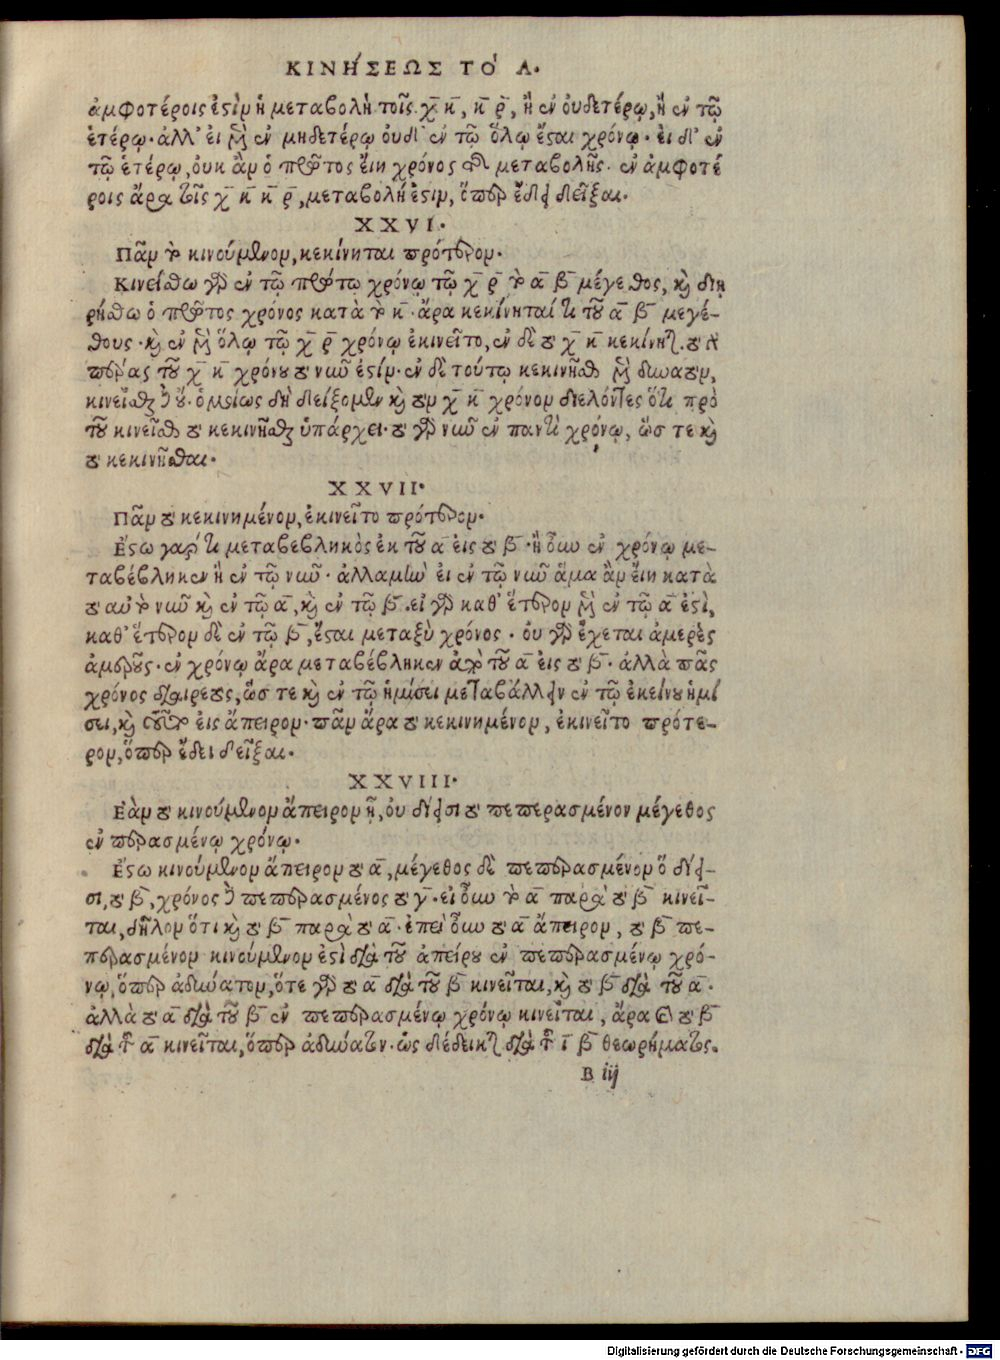 ΚΙΝΉΣΕΩΣ ΤΟ Α.
ἀμφοτέροις ἐστὶν ἡ μεταβολὴ τοῖς χ̄ κ̄, κ̄ ρ̄, ἢ ἐν οὐδετέρῳ, ἢ ἐν τῷ
ἑτέρῳ· ἀλλ' εἰ μὲν ἐν μηδετέρῳ οὐδ' ἐν τῷ ὅλῳ ἔσται χρόνῳ· εἰ δ' ἐν
τῷ ἑτέρῳ, οὐκ ἂν ὁ πρῶτος εἴη χρόνος τῆς μεταβολῆς· ἐν ἀμφοτέ
ροις ἄρα τοῖς χ̄ κ̄ κ̄ ρ̄, μεταβολή ἐστιν, ὅπερ ἔδει δεῖξαι.
XXVI.
Πᾶν τὸ κινούμενον, κεκίνηται πρότερον.
Κινείσθω γὰρ ἐν τῷ πρώτῳ χρόνῳ τῷ χ̄ ρ̄ τὸ ᾱ β̄ μέγεθος, καὶ διῃ
ρήσθω ὁ πρῶτος χρόνος κατὰ τὸ κ̄· ἄρα κεκίνηταί τι τοῦ ᾱ β̄ μεγέ-
θους· καὶ ἐν μὲν ὅλῳ τῷ χ̄ ρ̄ χρόνῳ ἐκινεῖτο, ἐν δὲ τῷ χ̄ κ̄ κεκίνηται. τὸ δὲ
πέρας τοῦ χ̄ κ̄ χρόνου τὸ νῦν ἐστίν· ἐν δὲ τούτῳ κεκινῆσθαι μὲν δυνατὸν,
κινεῖσθαι δὲ οὔ· ὁμοίως δὴ δείξομεν καὶ τὸν χ̄ κ̄ χρόνον διελόντες ὅτι πρὸ
τοῦ κινεῖσθαι τὸ κεκινῆσθαι ὑπάρχει· τὸ γὰρ νῦν ἐν παντὶ χρόνῳ, ὥστε καὶ
τὸ κεκινῆσθαι.
XXVII.
Πᾶν τὸ κεκινημένον, ἐκινεῖτο πρότερον.
Ἔστω γάρ τι μεταβεβληκὸς ἐκ τοῦ ᾱ εἰς τὸ β̄· ἢ οὖν ἐν χρόνῳ με-
ταβέβληκεν ἢ ἐν τῷ νῦν· ἀλλὰ μὴν εἰ ἐν τῷ νῦν ἅμα ἂν εἴη κατὰ
τὸ αὐτὸ νῦν καὶ ἐν τῷ ᾱ, καὶ ἐν τῷ β̄. εἰ γὰρ καθ' ἕτερον μὲν ἐν τῷ ᾱ ἐστὶ,
καθ' ἕτερον δὲ ἐν τῷ β̄, ἔσται μεταξὺ χρόνος. οὐ γὰρ ἔχεται ἀμερὲς
ἀμεροῦς· ἐν χρόνῳ ἄρα μεταβέβληκεν ἀπὸ τοῦ ᾱ εἰς τὸ β̄· ἀλλὰ πᾶς
χρόνος διαιρετὸς, ὥστε καὶ ἐν τῷ ἡμίσει μεταβάλλειν ἐν τῷ ἐκείνου ἡμί
σει, καὶ τοῦτο εἰς ἄπειρον· πᾶν ἄρα τὸ κεκινημένον, ἐκινεῖτο πρότε-
ρον, ὅπερ ἔδει δεῖξαι.
XXVIII.
Ἐὰν τὸ κινούμενον ἄπειρον ᾖ, οὐ δίεισι τὸ πεπερασμένον μέγεθος
ἐν περασμένῳ χρόνῳ.
Ἔστω κινούμενον ἄπειρον τὸ ᾱ, μέγεθος δὲ πεπερασμένον ὃ δίει-
σι, τὸ β̄, χρόνος δὲ πεπερασμένος τὸ γ̄· εἰ οὖν τὸ ᾱ παρὰ τὸ β̄ κινεῖ-
ται, δῆλον ὅτι καὶ τὸ β̄ παρὰ τὸ ᾱ· ἐπεὶ οὖν τὸ ᾱ ἄπειρον, τὸ β̄ πε-
περασμένον κινούμενον ἐστὶ διὰ τοῦ ἀπείρου ἐν πεπερασμένῳ χρό-
νῳ, ὅπερ ἀδύνατον, ὅτε γὰρ τὸ ᾱ διὰ τοῦ β̄ κινεῖται, καὶ τὸ β̄ διὰ τοῦ ᾱ·
ἀλλὰ τὸ ᾱ διὰ τοῦ β̄ ἐν πεπερασμένῳ χρόνῳ κινεῖται, ἄρα καὶ τὸ β̄
διὰ τοῦ ᾱ κινεῖται, ὅπερ ἀδύνατον· ὡς δέδεικται διὰ τοῦ ῑ β̄ θεωρήματος.
B iij
Digitalisierung gefördert durch die Deutsche Forschungsgemeinschaft - DFG